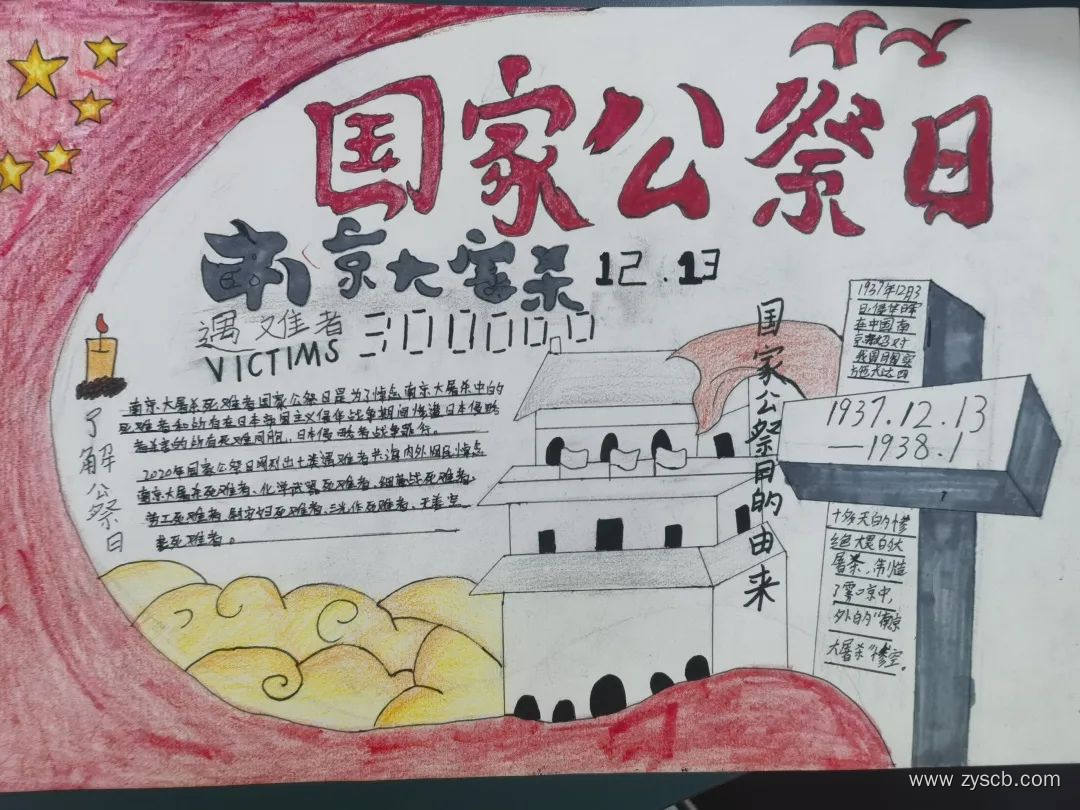 国家公祭日
南京大屠杀 12.13
遇难者 300000
VICTIMS
了解公祭日
南京大屠杀死难者国家公祭日是为了悼念南京大屠杀中的
死难者和所有在日本帝国主义侵华战争期间惨遭日本侵略
者杀害的所有死难同胞，日本侵略者战争罪行。
2020年国家公祭日网列出七类遇难者共海内外网民悼念
南京大屠杀死难者、化学武器死难者、细菌战死难者、
劳工死难者、慰安妇死难者、三光作死难者、无差
死难者。
国家公祭日的由来
1937年12月3
日侵华日军
在中国南
京
我国同胞实
施大达四
1937.12.13
—1938.1
十多天的惨
绝大
屠杀，制造
了
外的"南京
大屠杀"惨
www.zyscb.com